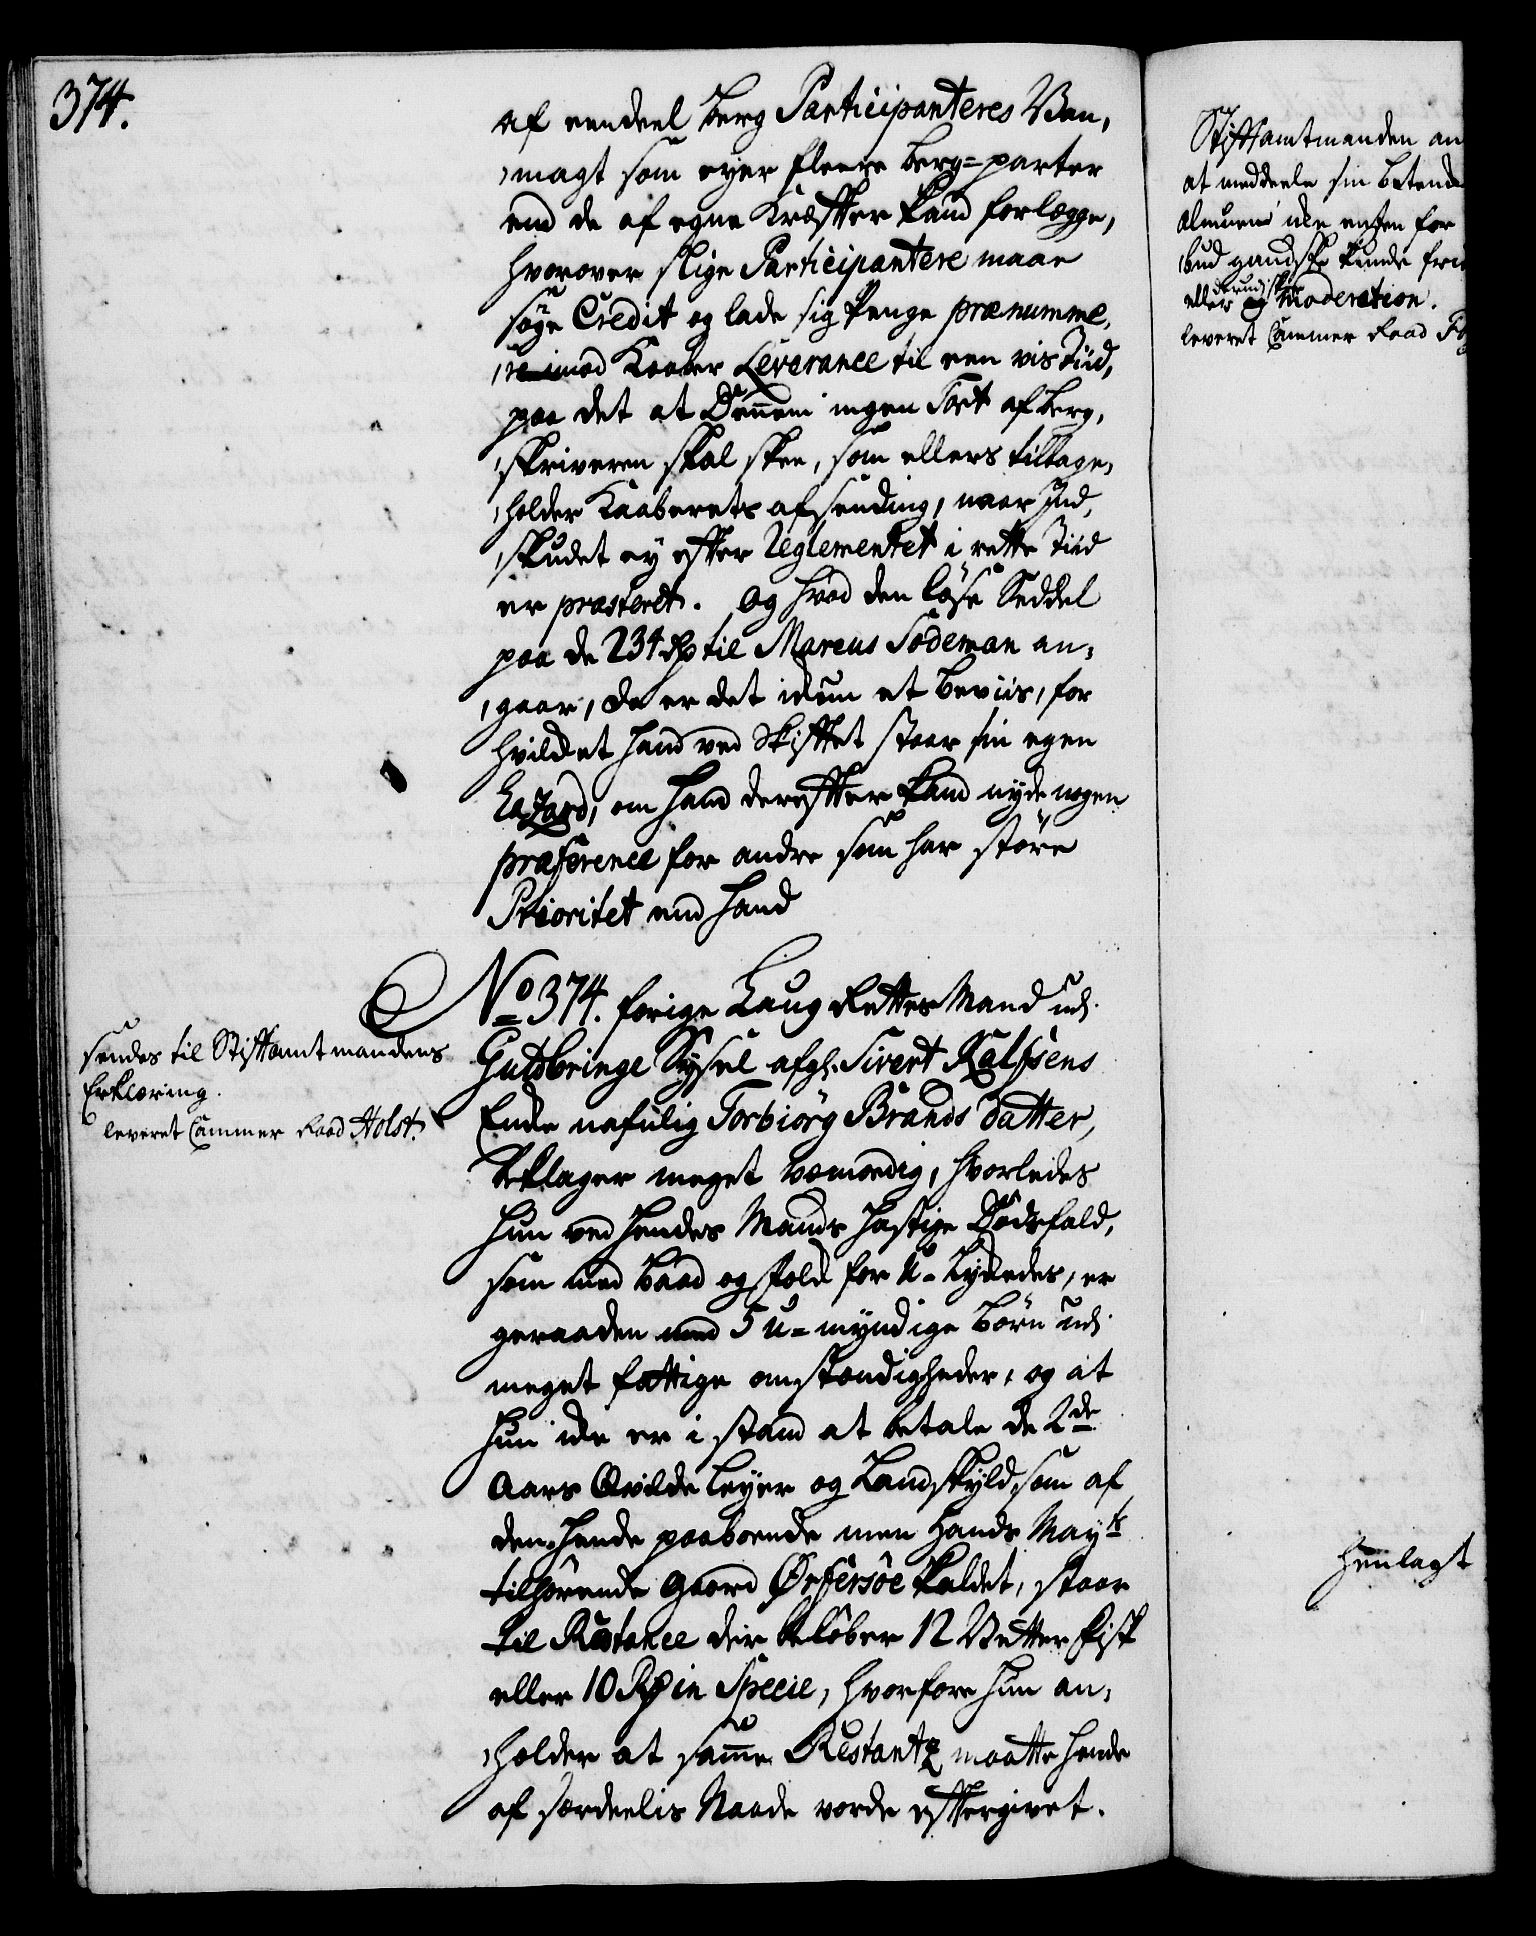 374.
af eendeel berg Participanteres Van,
,magt som eyer fleere berg=parter
end de af egne Kræffter kand forlægge,
hvorover slige Participantere maae
søge Credit og lade sig penge prænumme,
,re imod Kaaber Leverance til een vis Tiid,
paa det at Dennem ingen Tort af berg,
,skriveren skal skee, som ellers tilbage,
,holder Kaaberets afsending, naar Ind,
,skudet ey effter Reglementet i rette Tiid
er præsteret. Og hvad den løse Seddel
paa de 234 Rd til Marcus Sødeman an,
,gaar, da er det ickun et beviis, for
hvilcket hand ved Skifftet staar sin egen
Hazard, om hand dereffter kand nyde nogen
præference for andre som har større
Prioritet end hand
No 374. forige Laug Rettes Mand udi
Guldbringe Sysel afgl. Sivert
Encke nafnlig Torbiörg Brands datter,
beklager meget vemodig, hvorledes
hun ved hendes Mands hastige Dødsfald,
som med baad og folck for U=Lyckedes, er
geraaden med 5 u=myndige børn udi
meget fattige omstændigheder, og at
hun icke er i stand at betale de 2de
Aars Qvilde leyer og Landskyld, som af
den hende paaboende men Hands Mayts
tilhørende Gaard kaldet, staar
til Restance der beløber 12 Vetter Fisk
eller 10 Rd in Specie, hvorfore hun an,
,holder at samme Restantz maatte hende
af særdeelis Naade vorde efftergivet.
sendes til Stifftamtmandens
Erklæring.
leveret Cammer Raad Holst.
Stifftamtmanden an
at meddeele sin betænck
almuen icke enten for
bud gandske kunde frie
eller og Moderation.
leveret Cammer Raad
Henlagt